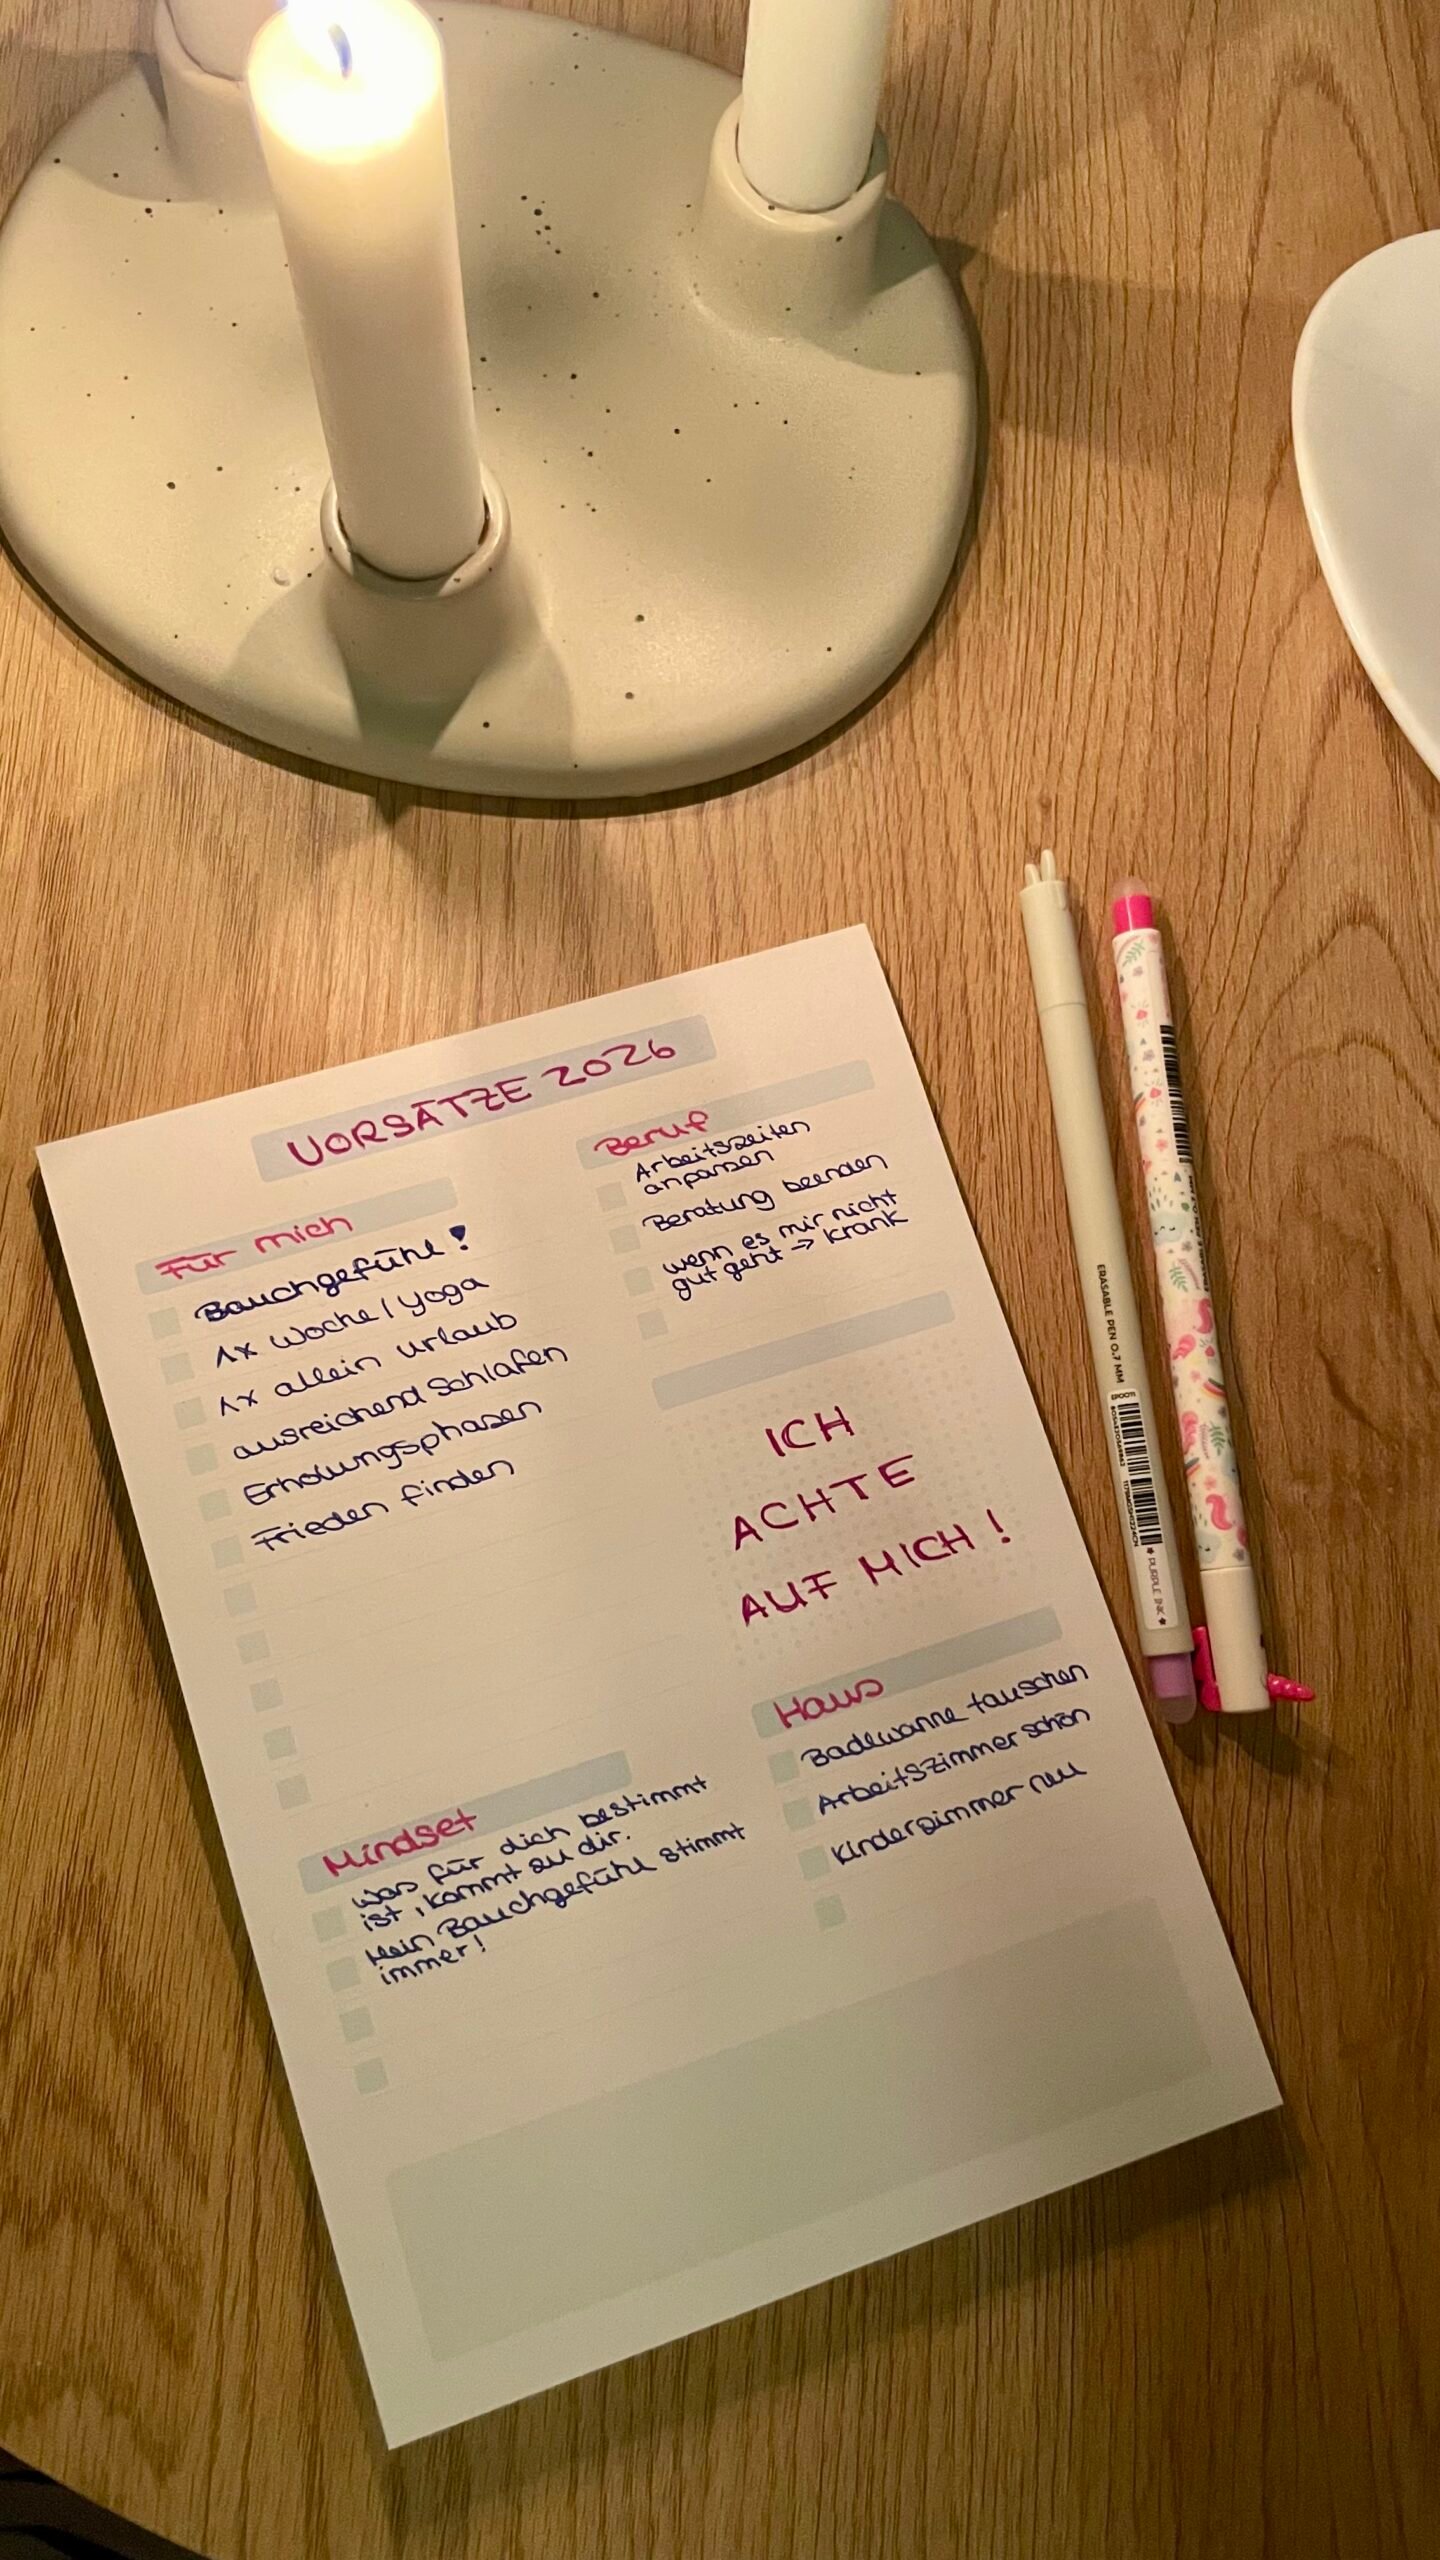 VORSÄTZE 2026
Für mich
Bauchgefühl!
1x Woche / Yoga
1x allein Urlaub
ausreichend Schlafen
Erholungsphasen
Frieden finden
Beruf
Arbeitszeiten
anpassen
Beratung beenden
wenn es mir nicht
gut geht → krank
ICH
ACHTE
AUF MICH!
Mindset
Was für dich bestimmt
ist, kommt zu dir.
Mein Bauchgefühl stimmt
immer!
Haus
Badewanne tauschen
Arbeitszimmer schön
Kinderzimmer neu
ERASABLE PEN 0.7 MM
PURPLE INK